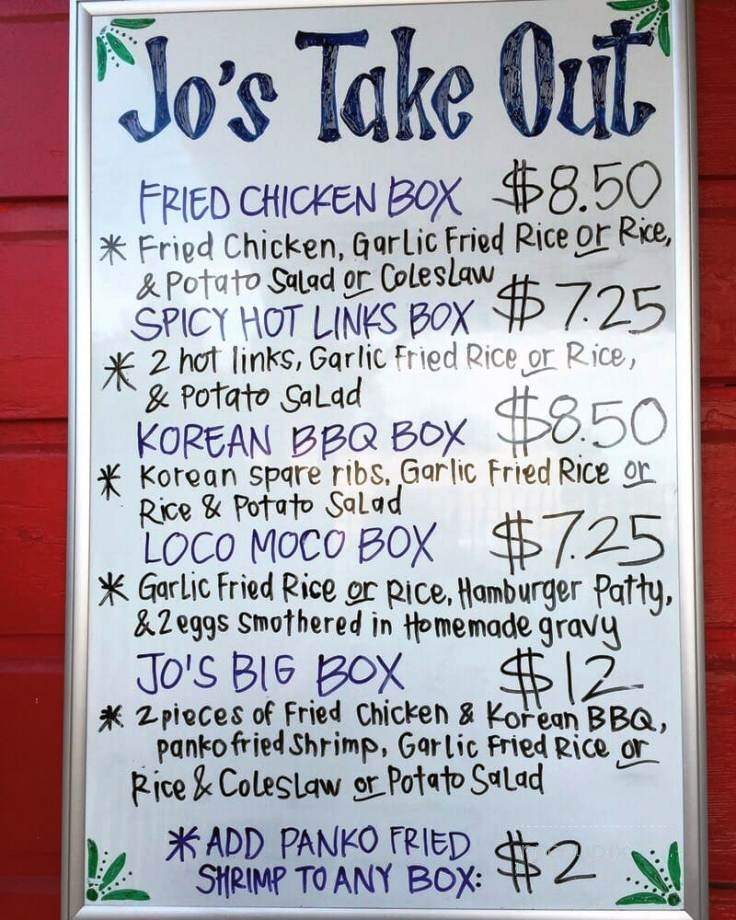 Jo's Take Out
FRIED CHICKEN BOX $8.50
* Fried Chicken, Garlic Fried Rice or Rice,
& Potato Salad or Coleslaw
SPICY HOT LINKS BOX $7.25
* 2 hot links, Garlic Fried Rice or Rice,
& Potato Salad
KOREAN BBQ BOX $8.50
* Korean spare ribs, Garlic Fried Rice or
Rice & Potato Salad
LOCO MOCO BOX $7.25
* Garlic Fried Rice or Rice, Hamburger Patty,
& 2 eggs smothered in Homemade gravy
JO'S BIG BOX $12
* 2 pieces of Fried Chicken & Korean BBQ,
panko fried Shrimp, Garlic Fried Rice or
Rice & Coleslaw or Potato Salad
* ADD PANKO FRIED
SHRIMP TO ANY BOX: $2